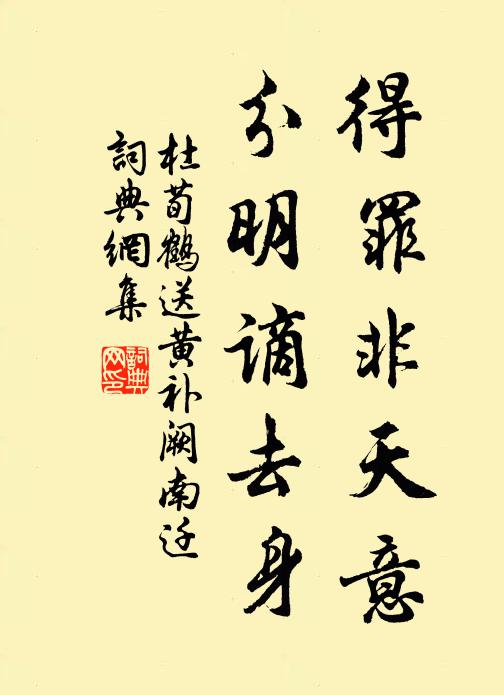 得罪非天意
分明谪去身
杜荀鶴送黄补阙南迁
詞典網集
詞典网印